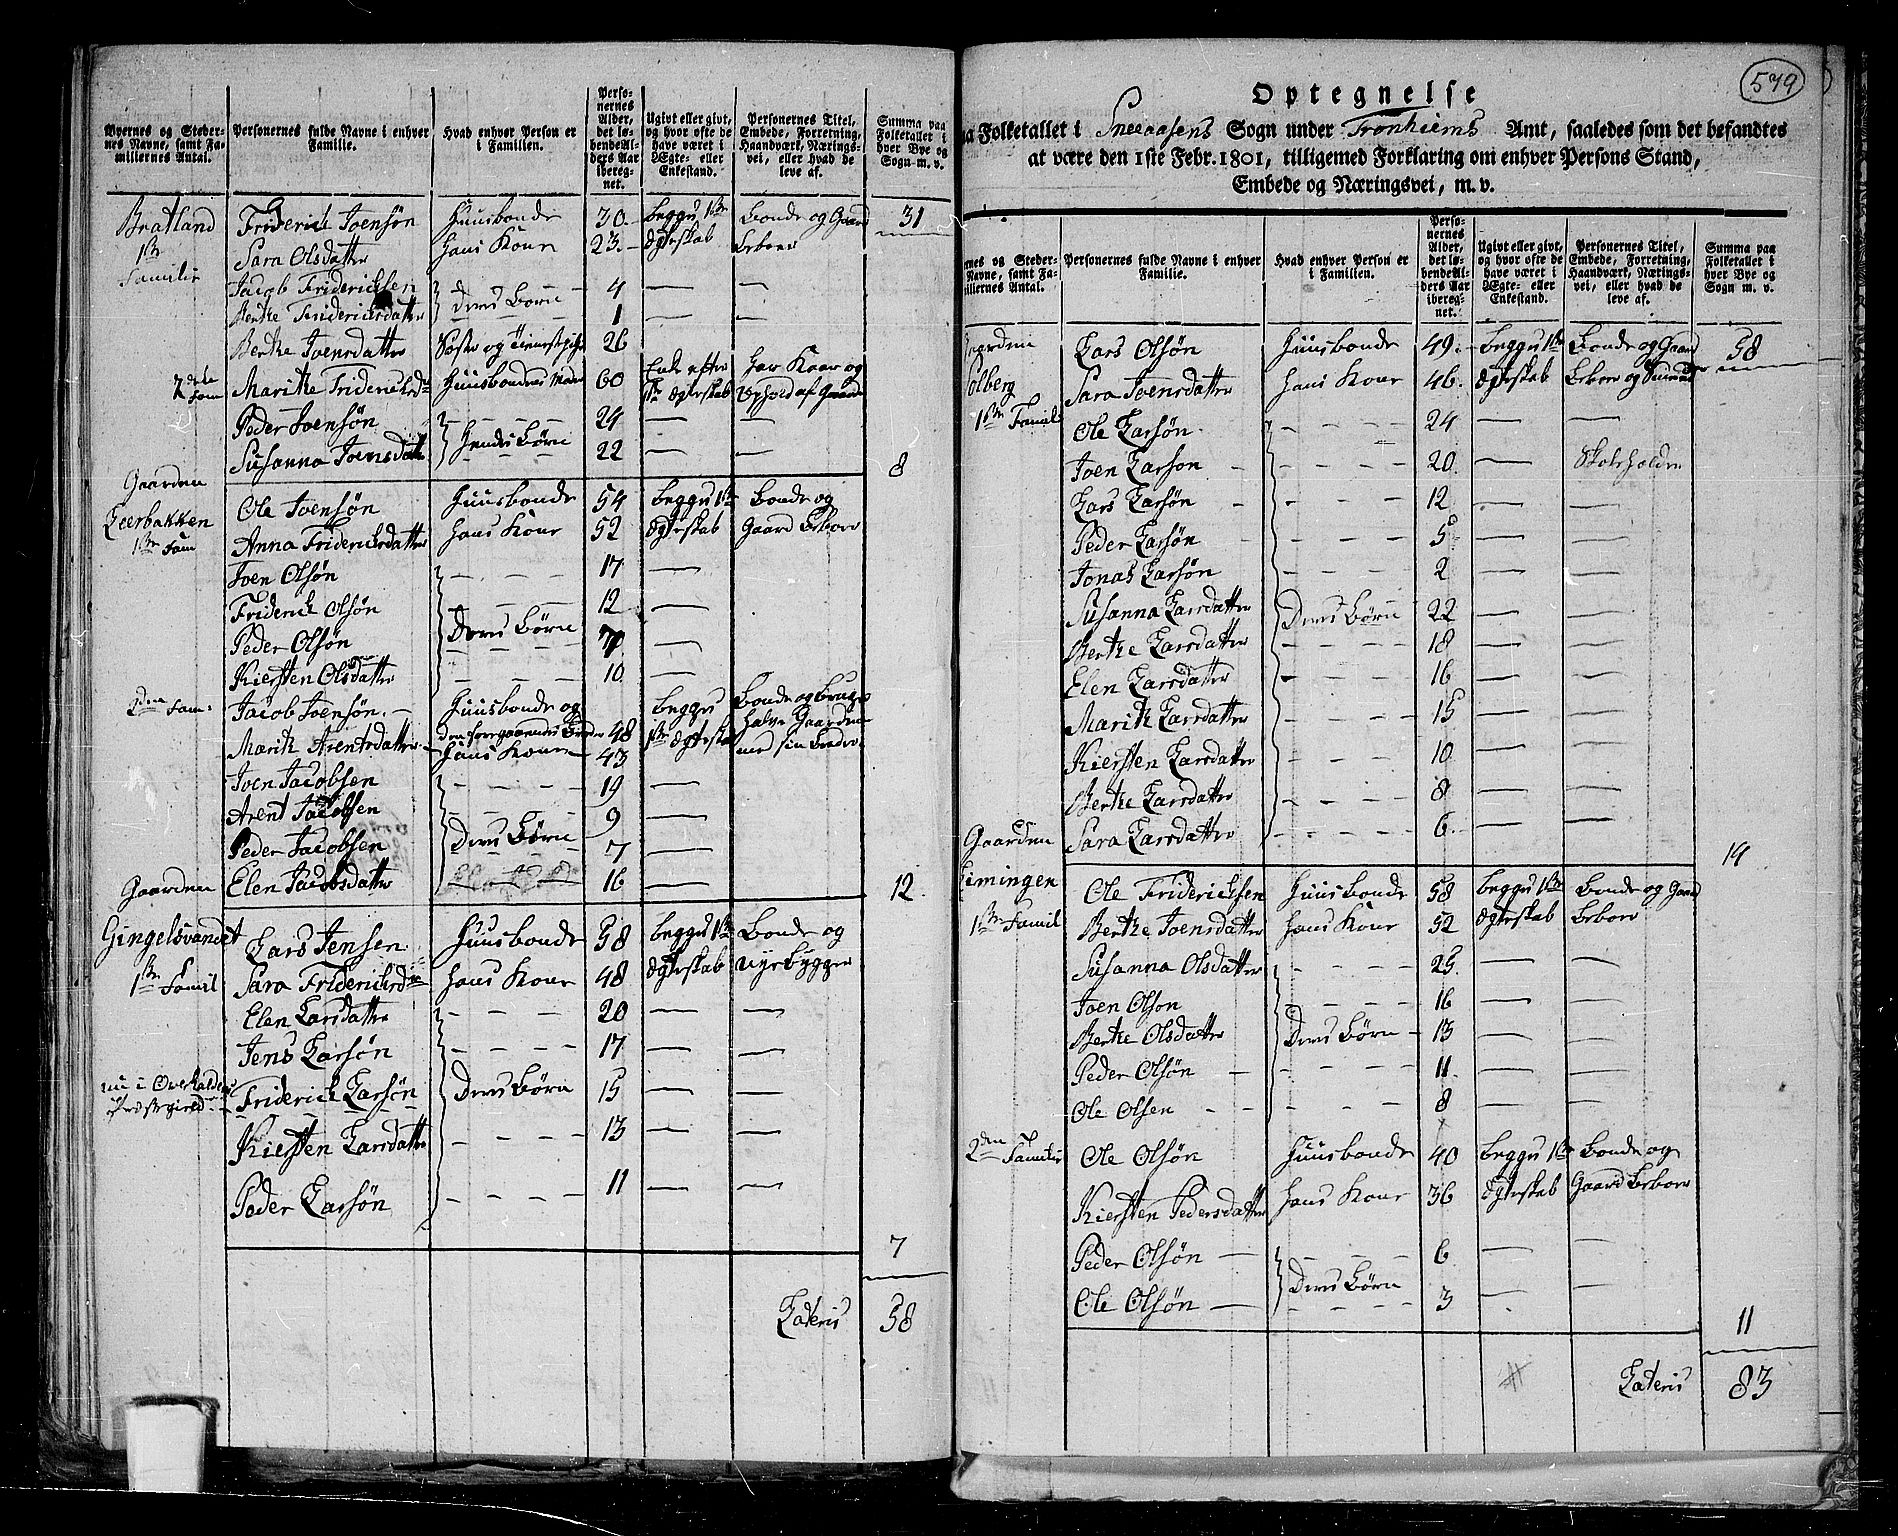 Byernes og Steder-
nes Navne, samt Fa-
miliernes Antal.
Personernes fulde Navne i enhver
Familie.
Hvad enhver Person er
i Familien.
Perso-
nernes
Alder,
det lø-
bende Al-
ders Aar
ibereg-
net.
Ugivt eller givt,
og hvor ofte de
have været i
Ægte- eller
Enkestand.
Personernes Titel,
Embede, Forretning,
Haandværk, Nærings-
vei, eller hvad de
leve af.
Summa paa
Folketallet i
hver Bye og
Sogn m. v.
Bratland Friderich Joensøn Huusbonde 30 begge 1ste Bonde og Gaard 31
1ste Sara Olsdatter Hans Kone 23 Ægteskab beboer
Familie Jacob Fridericksen 4 — —
Berthe Fridericksdatter Deres Børn 1 — —
Berthe Joensdatter Søster og Tienestepige 26
2den Fam Marithe Fridericksd Huusbondens Moder 60 Enke efter 1ste Ægteskab Har Kaar og Ophold af Gaarden
Peder Joensøn 24 — —
Susanna Joensdatt Hendes Børn 22 — — 8
Gaarden
Leerbakken Ole Joensøn Huusbonde 54 begge 1ste Bonde og
1ste Fam Anna Fridericksdatter Hans Kone 52 Ægteskab Gaard beboer
Joen Olsøn 17 —
Friderich Olsøn 12 —
Peder Olsøn Deres Børn 7 —
Kiersten Olsdatter 10 —
2den Fam: Jacob Joensøn Huusbonde og den foregaaendes Broder 48 begge Bonde og bruger
Marith Arentsdatter Hans Kone 43 1ste Ægteskab halve Gaarden med sin Broder
Joen Jacobsen 19 —
Arent Jacobsen 9 —
Peder Jacobsen Deres Børn 7 —
Elen Jacobsdatter 16 — 12
Gaarden
Gingelsvandet Lars Jensen Huusbonde 58 begge 1ste Bonde og
1ste Famil Sara Fridericksd Hans Kone 48 Ægteskab Nyebygger
Elen Larsdatter 20 — —
Jens Larsøn 17 — —
nu i Overhaldens
Præstegield Friderich Larsøn Deres Børn 15 — —
Kiersten Larsdatter 13 — —
Peder Larsøn 11 — —
7
Lateris 58
579
Optegnelse
paa Folketallet i Sneeaasens Sogn under Tronhiems Amt, saaledes som det befandtes
at være den 1ste Febr. 1801, tilligemed Forklaring om enhver Persons Stand,
Embede og Næringsvei, m. v.
nes og Steder-
Navne, samt Fa-
iliernes Antal.
Personernes fulde Navne i enhver
Familie.
Hvad enhver Person er
i Familien.
Perso-
nernes
Alder,
det lø-
bende Al-
ders Aar
ibereg-
net.
Ugivt eller givt,
og hvor ofte de
have været i
Ægte- eller
Enkestand.
Personernes Titel,
Embede, Forretning,
Haandværk, Nærings-
vei, eller hvad de
leve af.
Summa paa
Folketallet i
hver Bye og
Sogn m. v.
Gaarden Lars Olsøn Huusbonde 49 begge 1ste Bonde og Gaard 58
Solberg Sara Joensdatter Hans Kone 46 Ægteskab beboer og
1ste Famil Ole Larsøn 24 — —
Joen Larson 20 — Skoleholder
Lars Larsøn 12 — —
Peder Larsøn 5 — —
Jonas Larsøn 2 — —
Susanna Larsdatter Deres Børn 22 — —
Berthe Larsdatter 18 — —
Elen Larsdatter 16 — —
Marith Larsdatter 15 — —
Kiersten Larsdatter 10 — —
Berthe Larsdatter 8 — —
Sara Larsdatter 6 — —
14
Gaarden
Eimingen Ole Fridericksen Huusbonde 58 begge 1ste Bonde og Gaard
1ste Famil Berthe Joensdatter Hans Kone 52 Ægteskab beboer
Susanna Olsdatter 25 — —
Joen Olson 16 — —
Berthe Olsdatter Deres Børn 13 — —
Peder Olsøn 11 — —
Ole Olsen 8 — —
2den Familie Ole Olsøn Huusbonde 40 begge 1ste Bonde og
Kiersten Pedersdatter Hans Kone 36 Ægteskab Gaard beboer
Peder Olsøn 6 — —
Ole Olsøn Deres Børn 3 —
11
Lateris 83